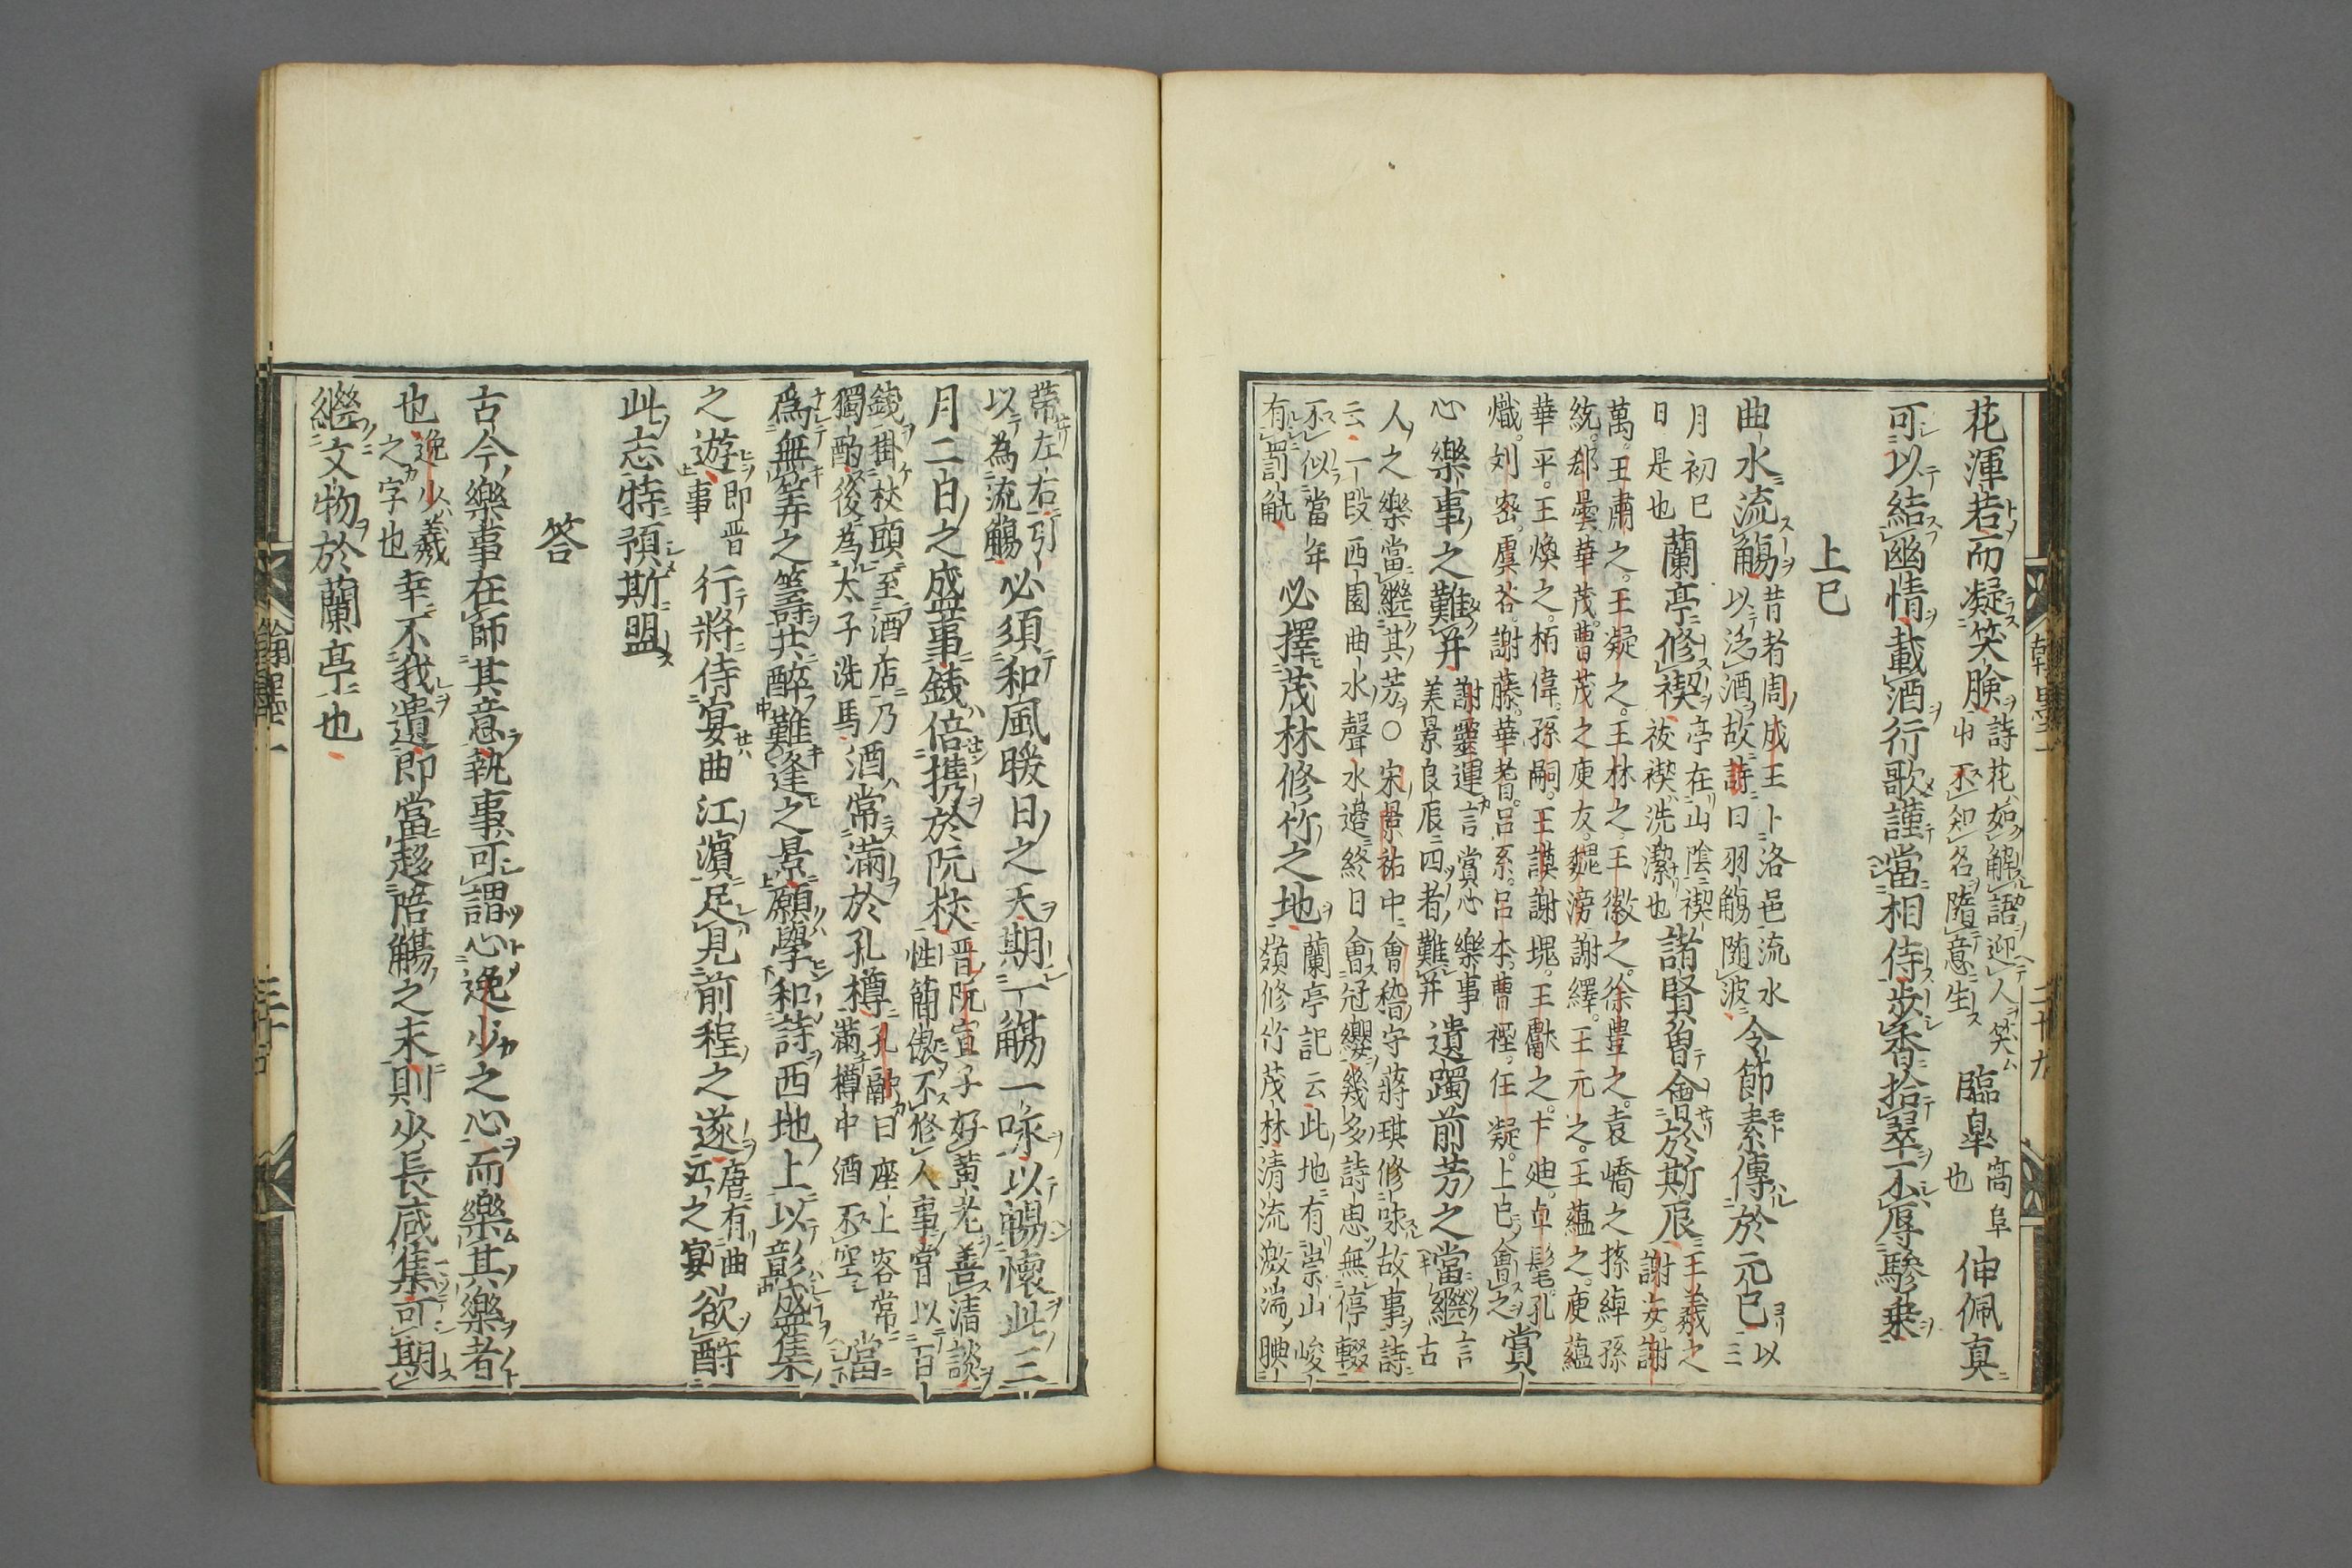 花渾若而凝笑臉詩花如解語迎人笑
屮不知名隨意生臨皐高阜也伸佩真
可以結幽情載酒行歌謹當相侍步香拾翠不辱驂乘
上巳
曲水流觴昔者周成王卜洛邑流水
以泛酒故詩曰羽觴随波令節素傳於元巳以三
月初巳日是也蘭亭修禊亭在山陰禊祓禊洗潔也諸賢曾會於斯辰王羲之謝安謝
萬王肅之王凝之王林之王徽之徐豊之袁嶠之孫綽孫
統郄曇華茂曹茂之庾友魏滂謝繹王元之王蘊之庾蘊
華平王煥之栢偉孫嗣王謨謝塊王獻之卞廸卓髦孔
熾刘宻虞谷謝藤華耆呂系呂本曹禋任凝上巳會之賞
心樂事之難并謝靈運言賞心樂事
美景良辰四者難并遺躅前芳之當繼言古
人之樂當繼其芳○宋景祐中會稽守蔣琪修咏故事詩
云一段西園曲水聲水邉終日會冠纓幾多詩思無停輟
不似當年有罰觥必擇茂林修竹之地蘭亭記云此地有崇山峻
嶺修竹茂林清流激湍腆
帶左右引以為流觴必須和風暖日之天期一觴一咏以暢懷此三
月二日之盛事錢倍携於阮杖晋阮宣子好黃老善清談
性簡傲不修人事嘗以百
錢掛杖頭至酒店乃
獨酌後為太子洗馬酒常滿於孔樽孔融曰座上客常
滿樽中酒不空當
爲無筭之籌共醉難逢之景願學和詩西地上以彰盛集
之遊即晋上事行將侍宴曲江濵足見前程之遂唐有曲
江之宴欲酹
此志特預斯盟
答
古今樂事在師其意執事可謂心逸少之心而樂其樂者
也逸少羲之字也幸不我遺即當趍陪觴之末則少長咸集可期
繼文物於蘭亭也
翰墨一
二十九
翰墨一
三十